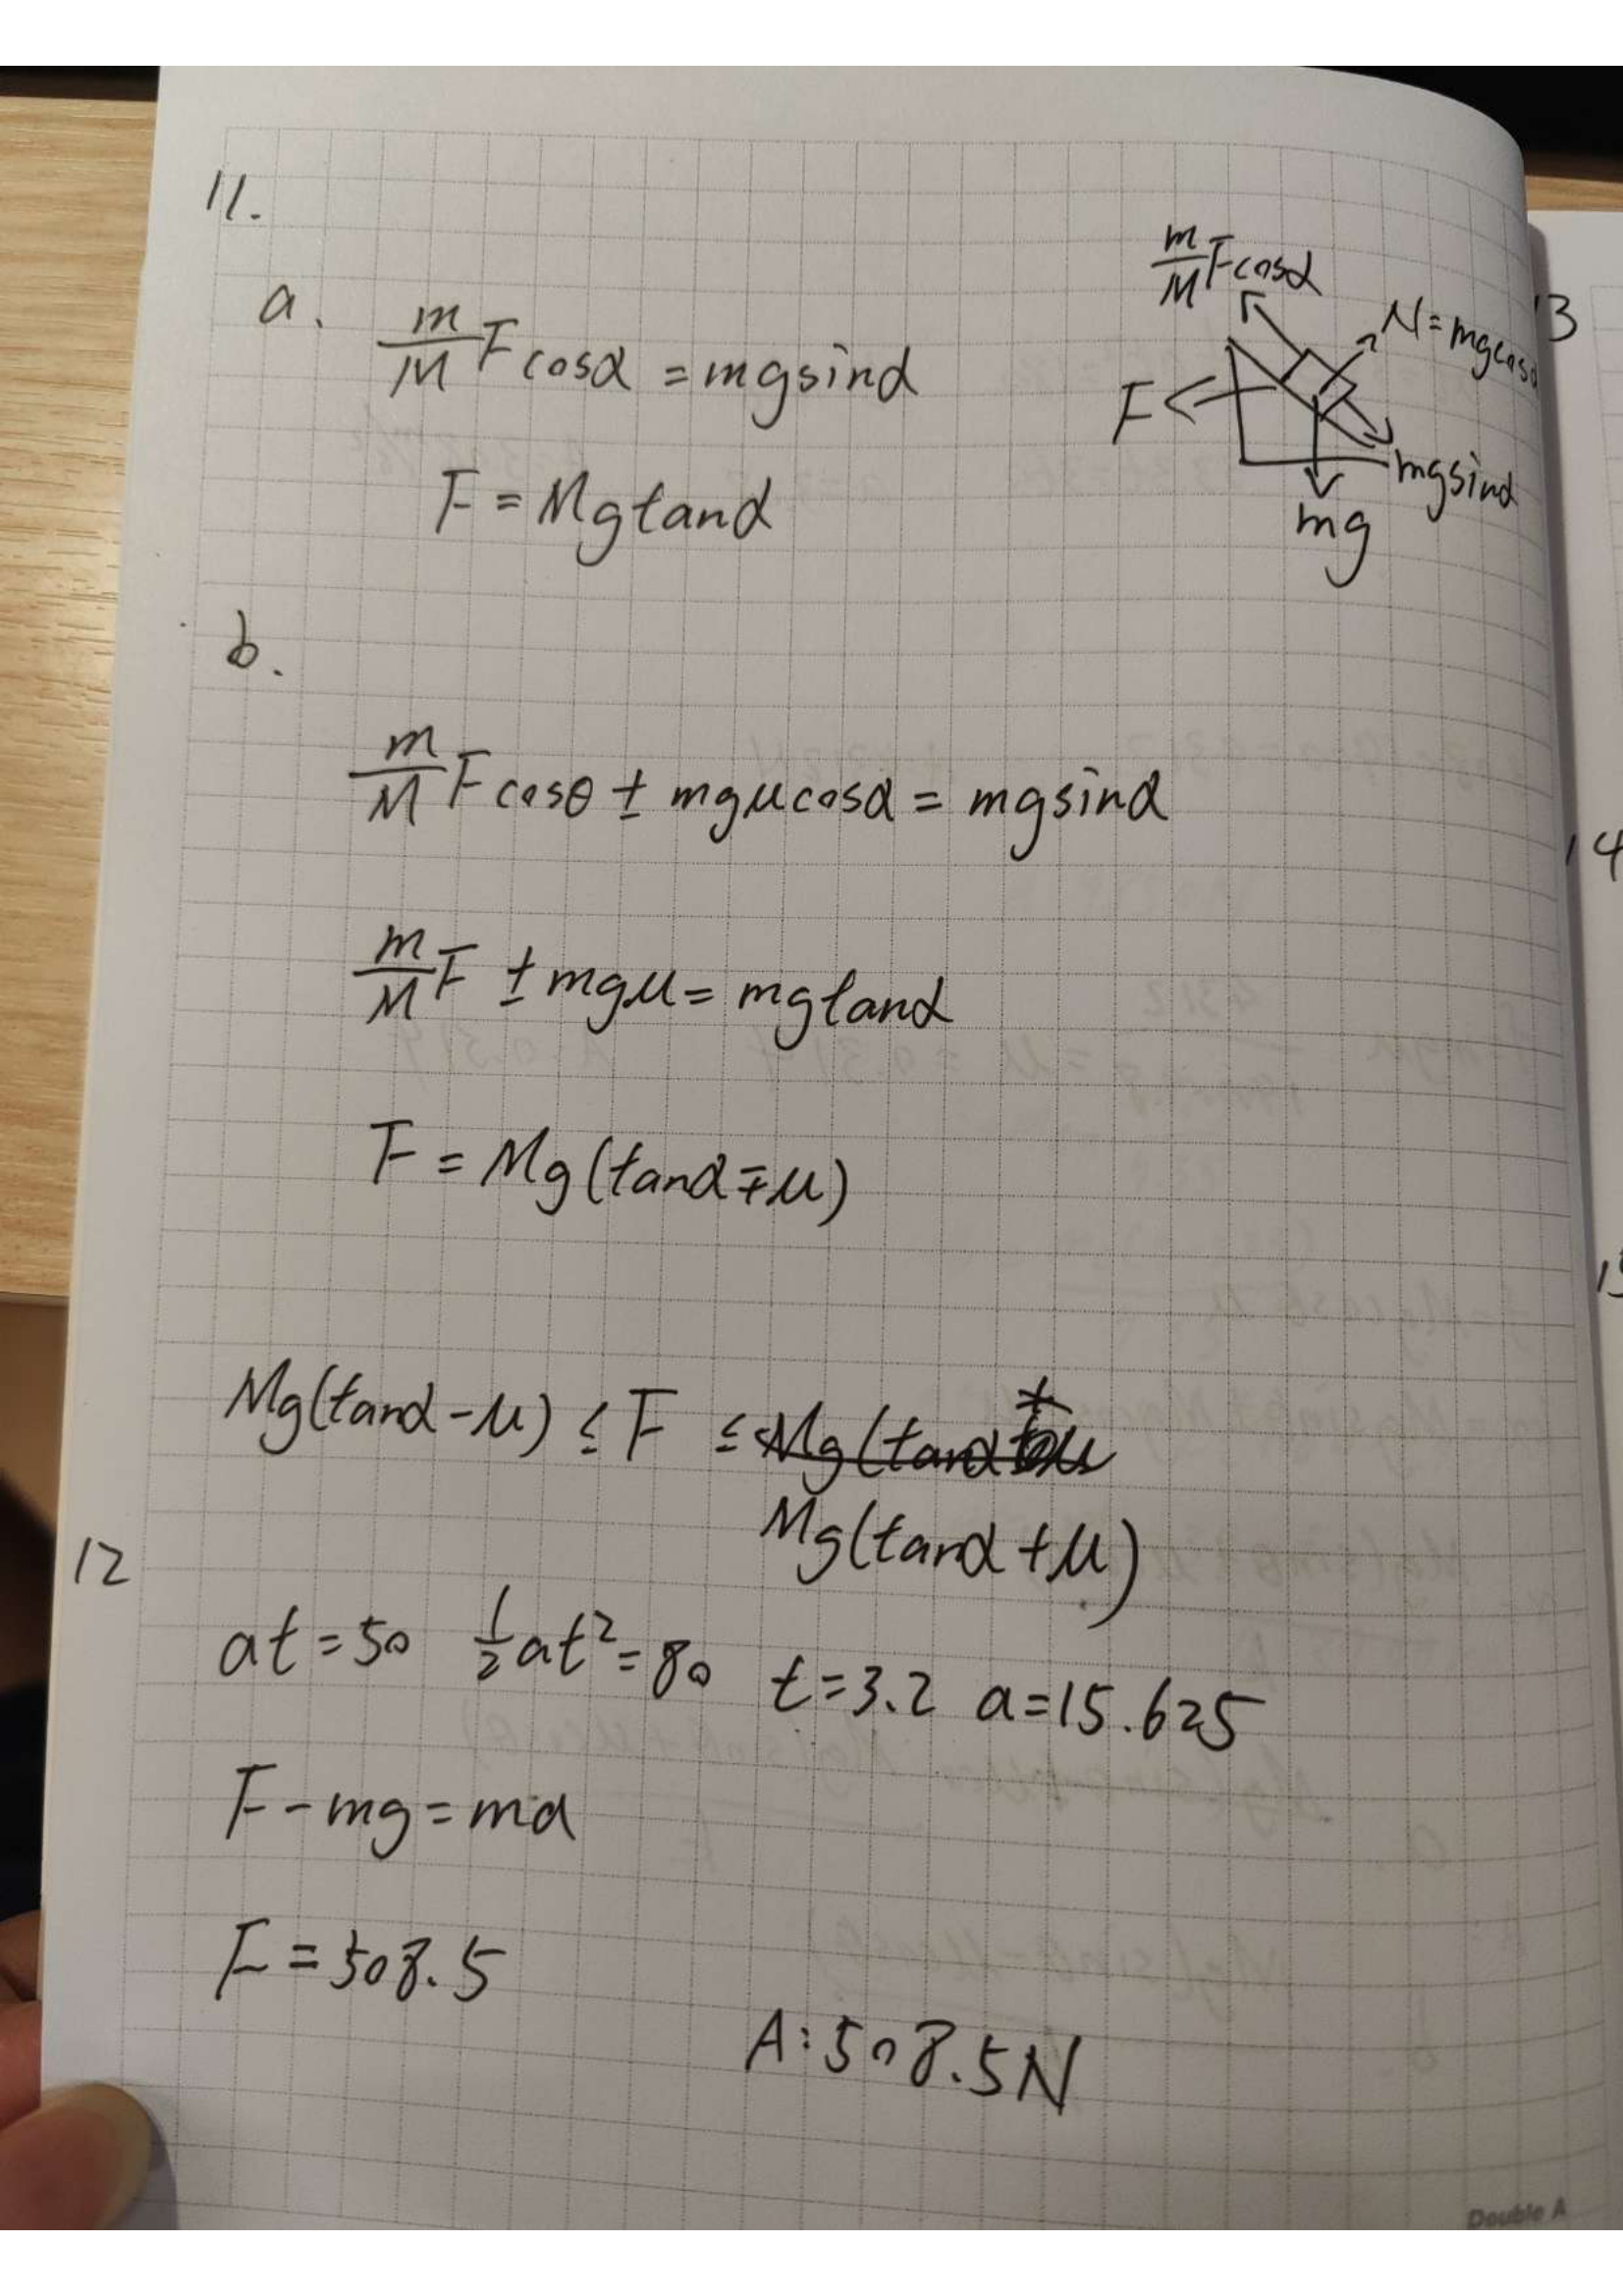 11.
a. m/M F cosα = mgsinα
F = Mgtanα
m/M Fcosα
N = mgcosα
F
mgsinα
mg
b.
m/M F cosθ ± mgμcosα = mgsinα
m/M F ± mgμ = mgtanα
F = Mg(tanα ∓ μ)
Mg(tanα - μ) ≤ F ≤
Mg(tanα + μ)
12
at = 50 1/2 at² = 80 t = 3.2 a = 15.625
F - mg = ma
F = 508.5
A: 508.5N
13
14
Double A